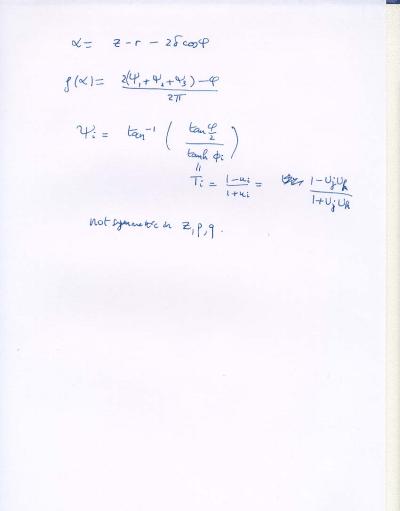 α = z - r - 2δ cos φ
ρ(α) = 2(Ψ₁ + Ψ₂ + Ψ₃) - φ / 2π
Ψi = tan⁻¹ ( tan φ/2 / tanh ϕi )
Ti = 1-ui / 1+ui = 1-UjUk / 1+UjUk
not symmetric in z, p, q.